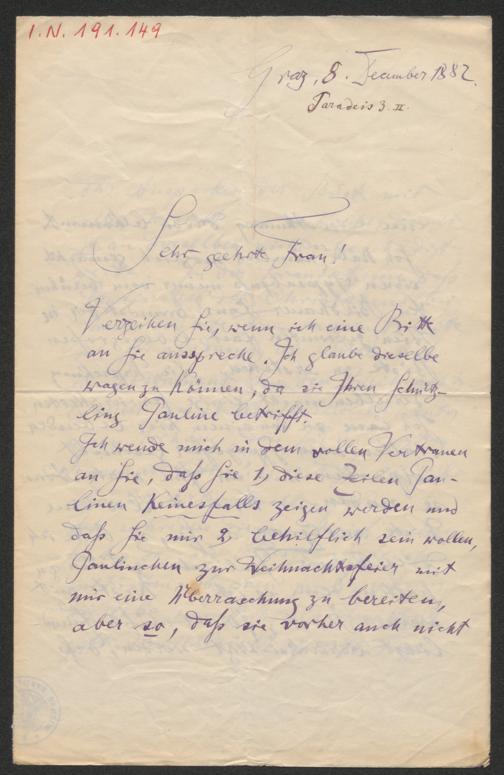 I.N. 191.149
Graz, 8. December 1882.
Paradeis 3. II.
Sehr geehrte Frau!
Verzeihen Sie, wenn ich eine Bitte
an Sie ausspreche. Ich glaube dieselbe
wagen zu können, da sie Ihren Schütz-
ling Pauline betrifft.
Ich wende mich in dem vollen Vertrauen
an Sie, daß Sie 1, diese Zeilen Pau-
linen keinesfalls zeigen werden und
daß Sie mir 2, behilflich sein wollen,
Paulinchen zur Weihnachtsfeier mit
mir eine Überraschung zu bereiten,
aber so, daß sie vorher auch nicht